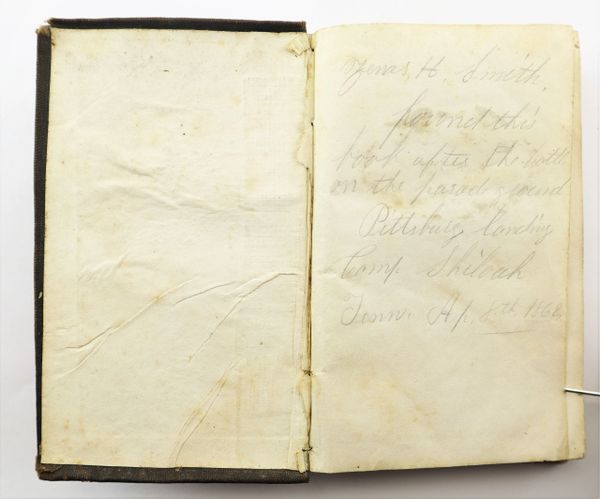 Zenas H. Smith,
found this
book after the battle
on the parade ground
Pittsburg landing
Camp Shiloah
Tenn. Ap. 8th 1862